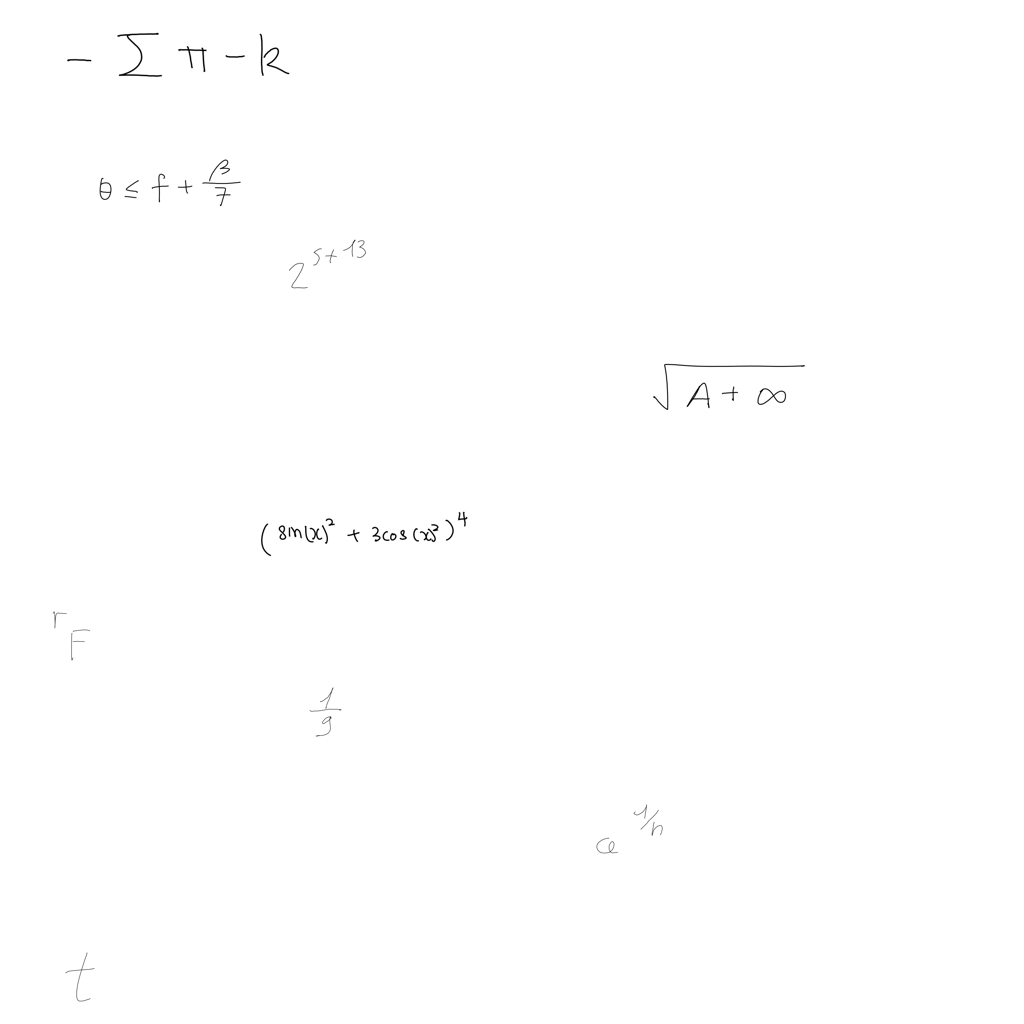 - ∑ π - k
θ ≤ f + β/7
2^{5+13}
√(A + ∞)
(sin(x)^2 + 3cos(x)^2)^4
^r F
1/9
a^{1/n}
t